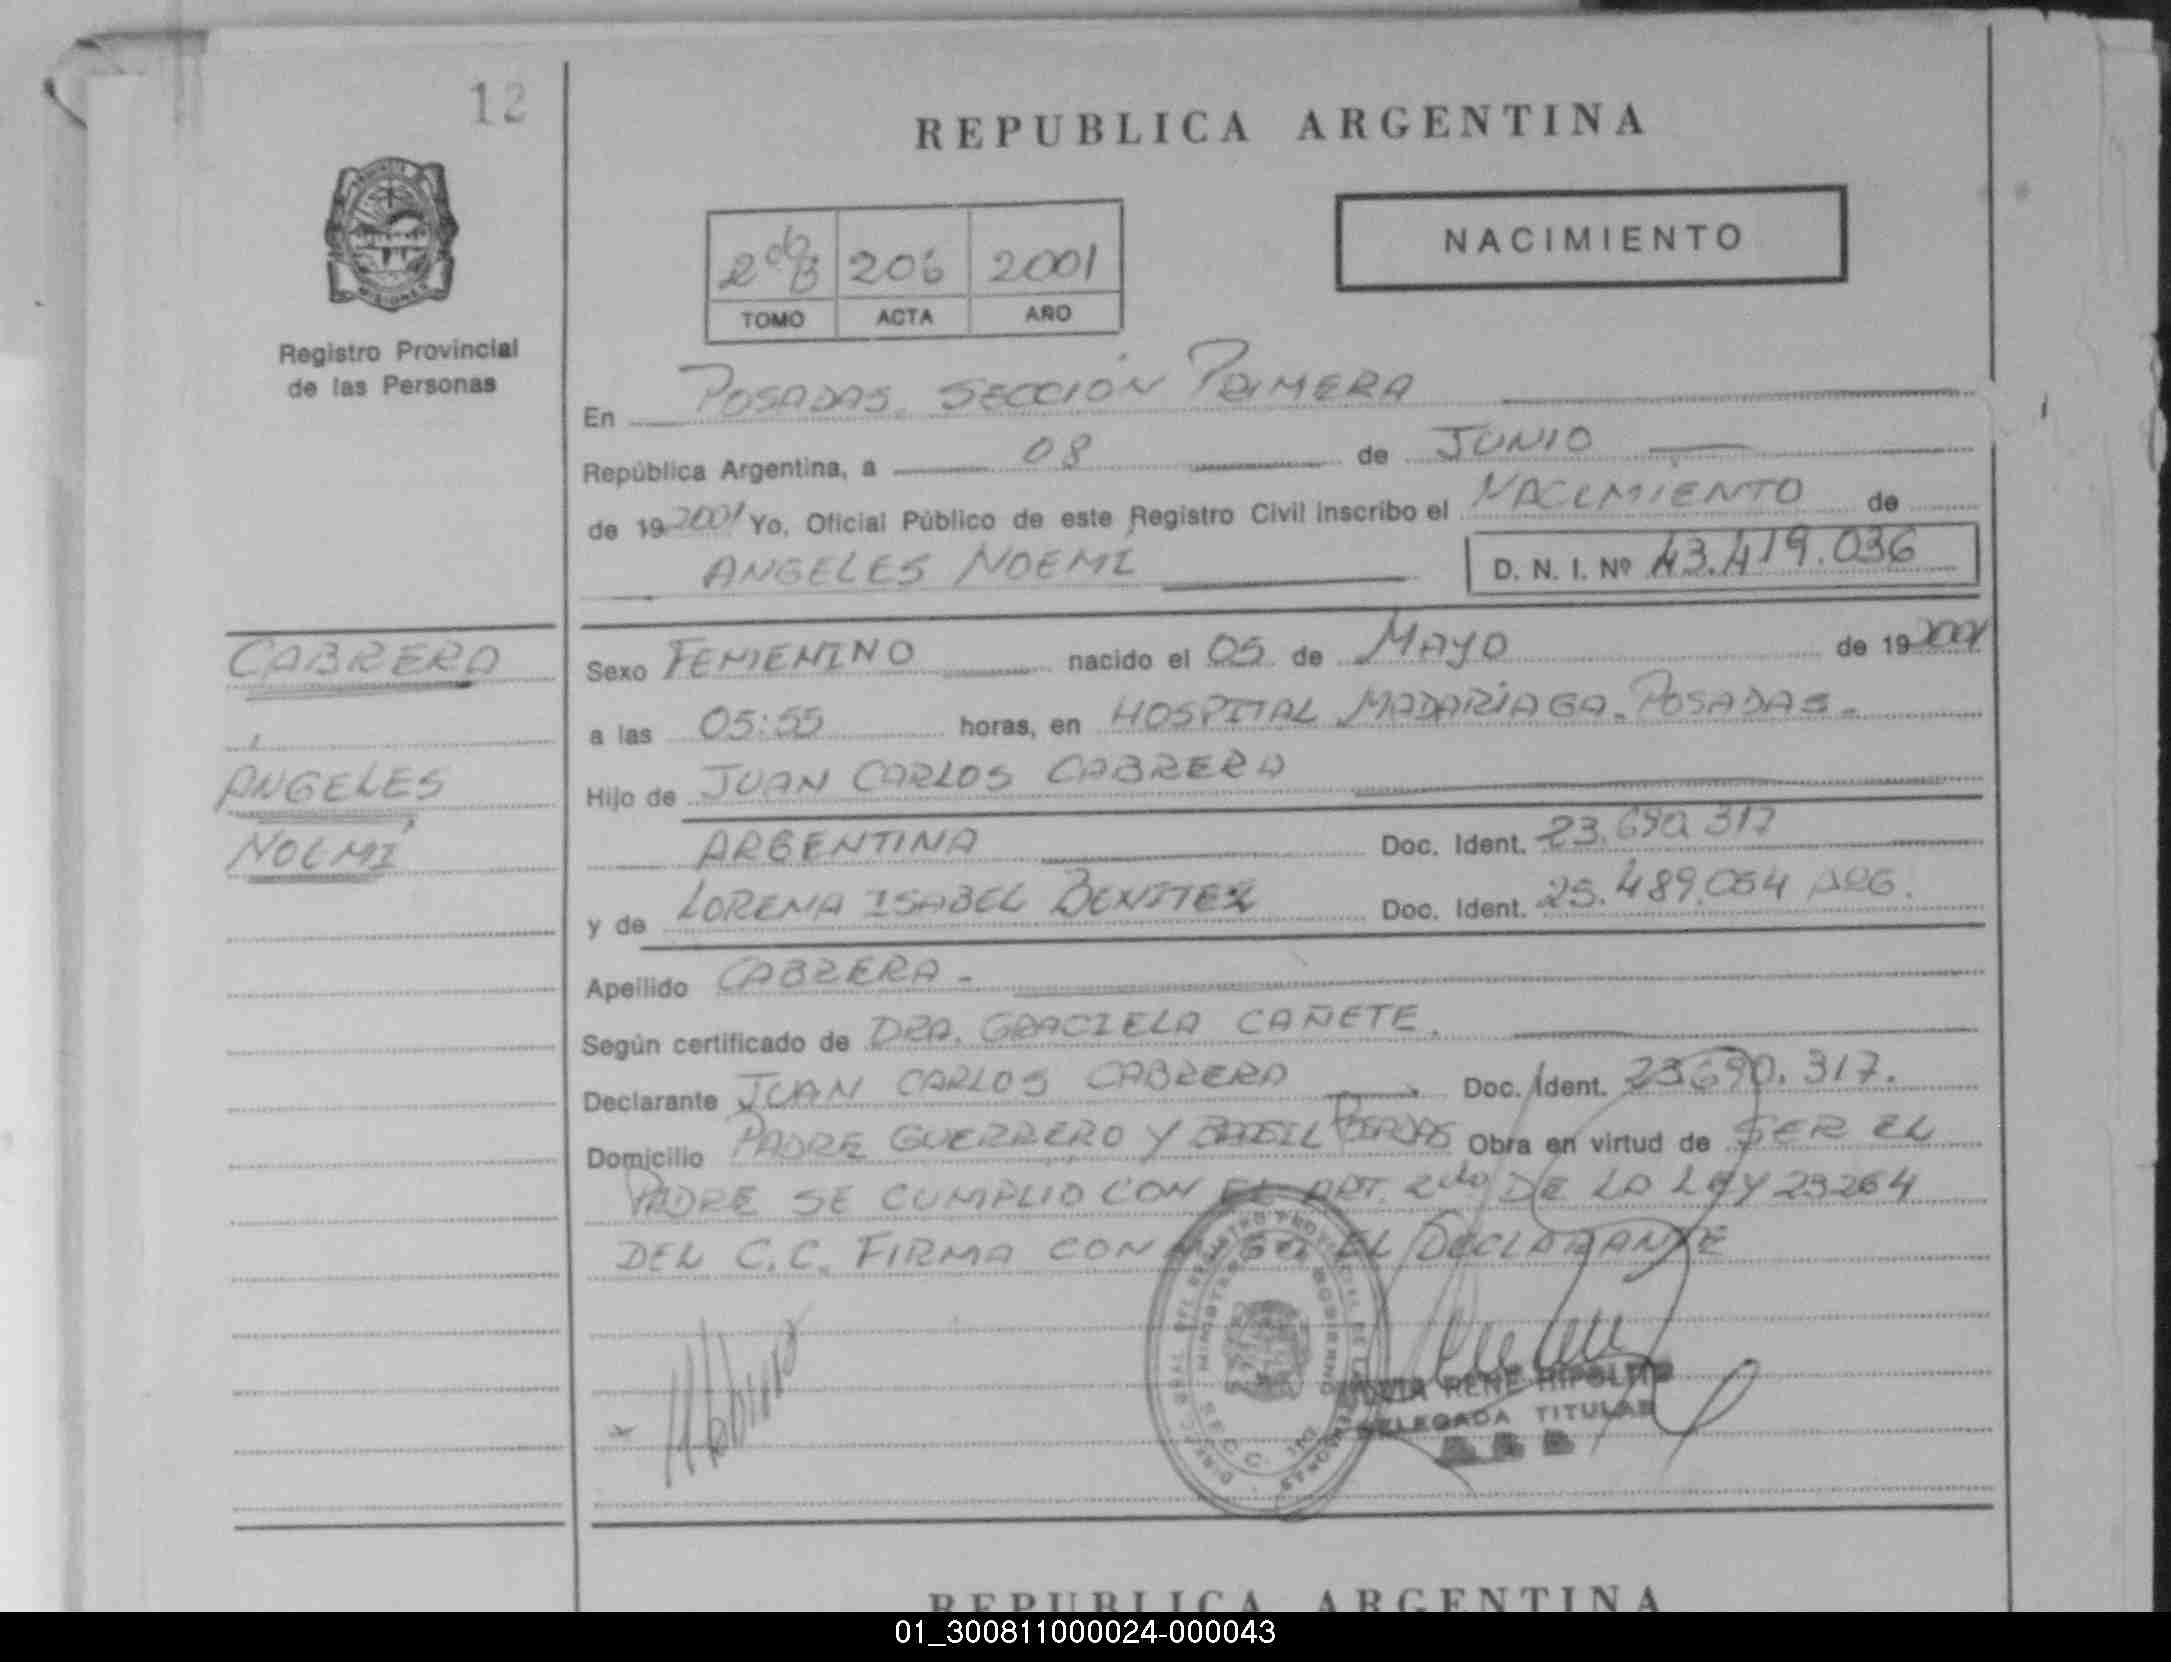 12
REPUBLICA ARGENTINA
NACIMIENTO
2do B 206 2001
TOMO ACTA AÑO
Registro Provincial
de las Personas
En POSADAS. SECCIÓN PRIMERA
República Argentina, a 08 de JUNIO
de 19 2001 Yo, Oficial Público de este Registro Civil inscribo el NACIMIENTO de
ANGELES NOEMI D. N. I. Nº 43.419.036
CABRERA
ANGELES
NOEMÍ
Sexo FEMENINO nacido el 05 de MAYO de 19 2001
a las 05:55 horas, en HOSPITAL MADARIAGA. POSADAS.
Hijo de JUAN CARLOS CABRERA
ARGENTINA Doc. Ident. 23.690.317
y de LORENA ISABEL BENITEZ Doc. Ident. 25.489.054 ARG.
Apellido CABRERA.
Según certificado de DRA. GRACIELA CAÑETE.
Declarante JUAN CARLOS CABRERA Doc. Ident. 23690.317.
Domicilio PADRE GUERRERO Y BRASIL Obra en virtud de SER EL
PADRE SE CUMPLIO CON EL ART. 2do DE LA LEY 23264
DEL C.C. FIRMA CON EL DECLARANTE
RENE HIPOLITO
DELEGADA TITULAR
REPUBLICA ARGENTINA
01_300811000024-000043